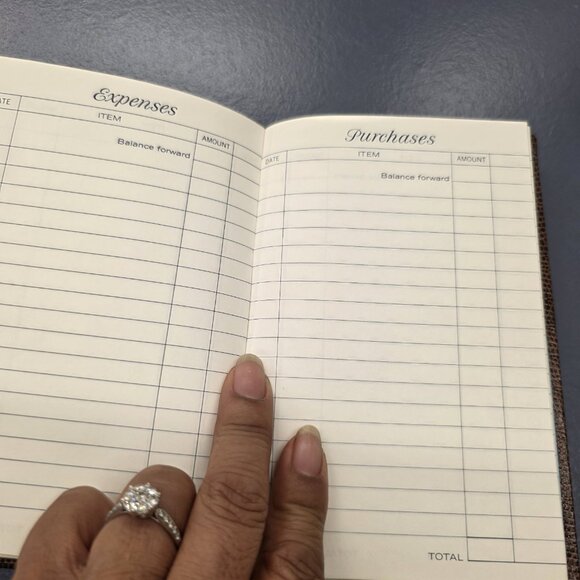 Expenses
DATE ITEM AMOUNT
Balance forward
Purchases
DATE ITEM AMOUNT
Balance forward
TOTAL